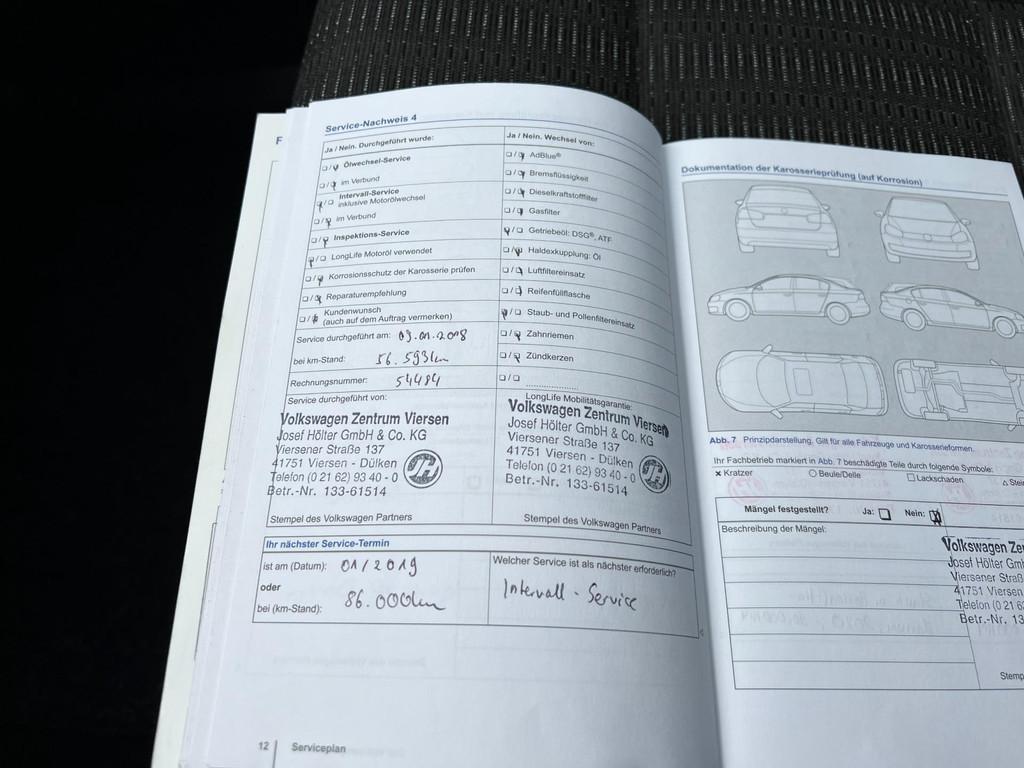 F
Service-Nachweis 4
Ja / Nein. Durchgeführt wurde:
Ölwechsel-Service
im Verbund
Intervall-Service
inklusive Motorölwechsel
im Verbund
Inspektions-Service
LongLife Motoröl verwendet
Korrosionsschutz der Karosserie prüfen
Reparaturempfehlung
Kundenwunsch
(auch auf dem Auftrag vermerken)
Service durchgeführt am: 09.01.2018
bei km-Stand: 56.593km
Rechnungsnummer: 54484
Service durchgeführt von:
Volkswagen Zentrum Viersen
Josef Hölter GmbH & Co. KG
Viersener Straße 137
41751 Viersen - Dülken
Telefon (0 21 62) 93 40 - 0
Betr.-Nr. 133-61514
Stempel des Volkswagen Partners
Ja / Nein. Wechsel von:
AdBlue®
Bremsflüssigkeit
Dieselkraftstofffilter
Gasfilter
Getriebeöl: DSG®, ATF
Haldexkupplung: Öl
Luftfiltereinsatz
Reifenfüllflasche
Staub- und Pollenfiltereinsatz
Zahnriemen
Zündkerzen
LongLife Mobilitätsgarantie:
Volkswagen Zentrum Viersen
Josef Hölter GmbH & Co. KG
Viersener Straße 137
41751 Viersen - Dülken
Telefon (0 21 62) 93 40 - 0
Betr.-Nr. 133-61514
Stempel des Volkswagen Partners
Ihr nächster Service-Termin
ist am (Datum): 01/2019
oder
bei (km-Stand): 86.000km
Welcher Service ist als nächster erforderlich?
Intervall - Service
12 Serviceplan
Dokumentation der Karosserieprüfung (auf Korrosion)
Abb. 7 Prinzipdarstellung. Gilt für alle Fahrzeuge und Karosserieformen.
Ihr Fachbetrieb markiert in Abb. 7 beschädigte Teile durch folgende Symbole:
× Kratzer ○ Beule/Delle □ Lackschaden △ Stei
Mängel festgestellt? Ja: Nein:
Beschreibung der Mängel:
Volkswagen Ze
Josef Hölter Gm
Viersener Straß
41751 Viersen
Telefon (0 21 6
Betr.-Nr. 13
Stemp